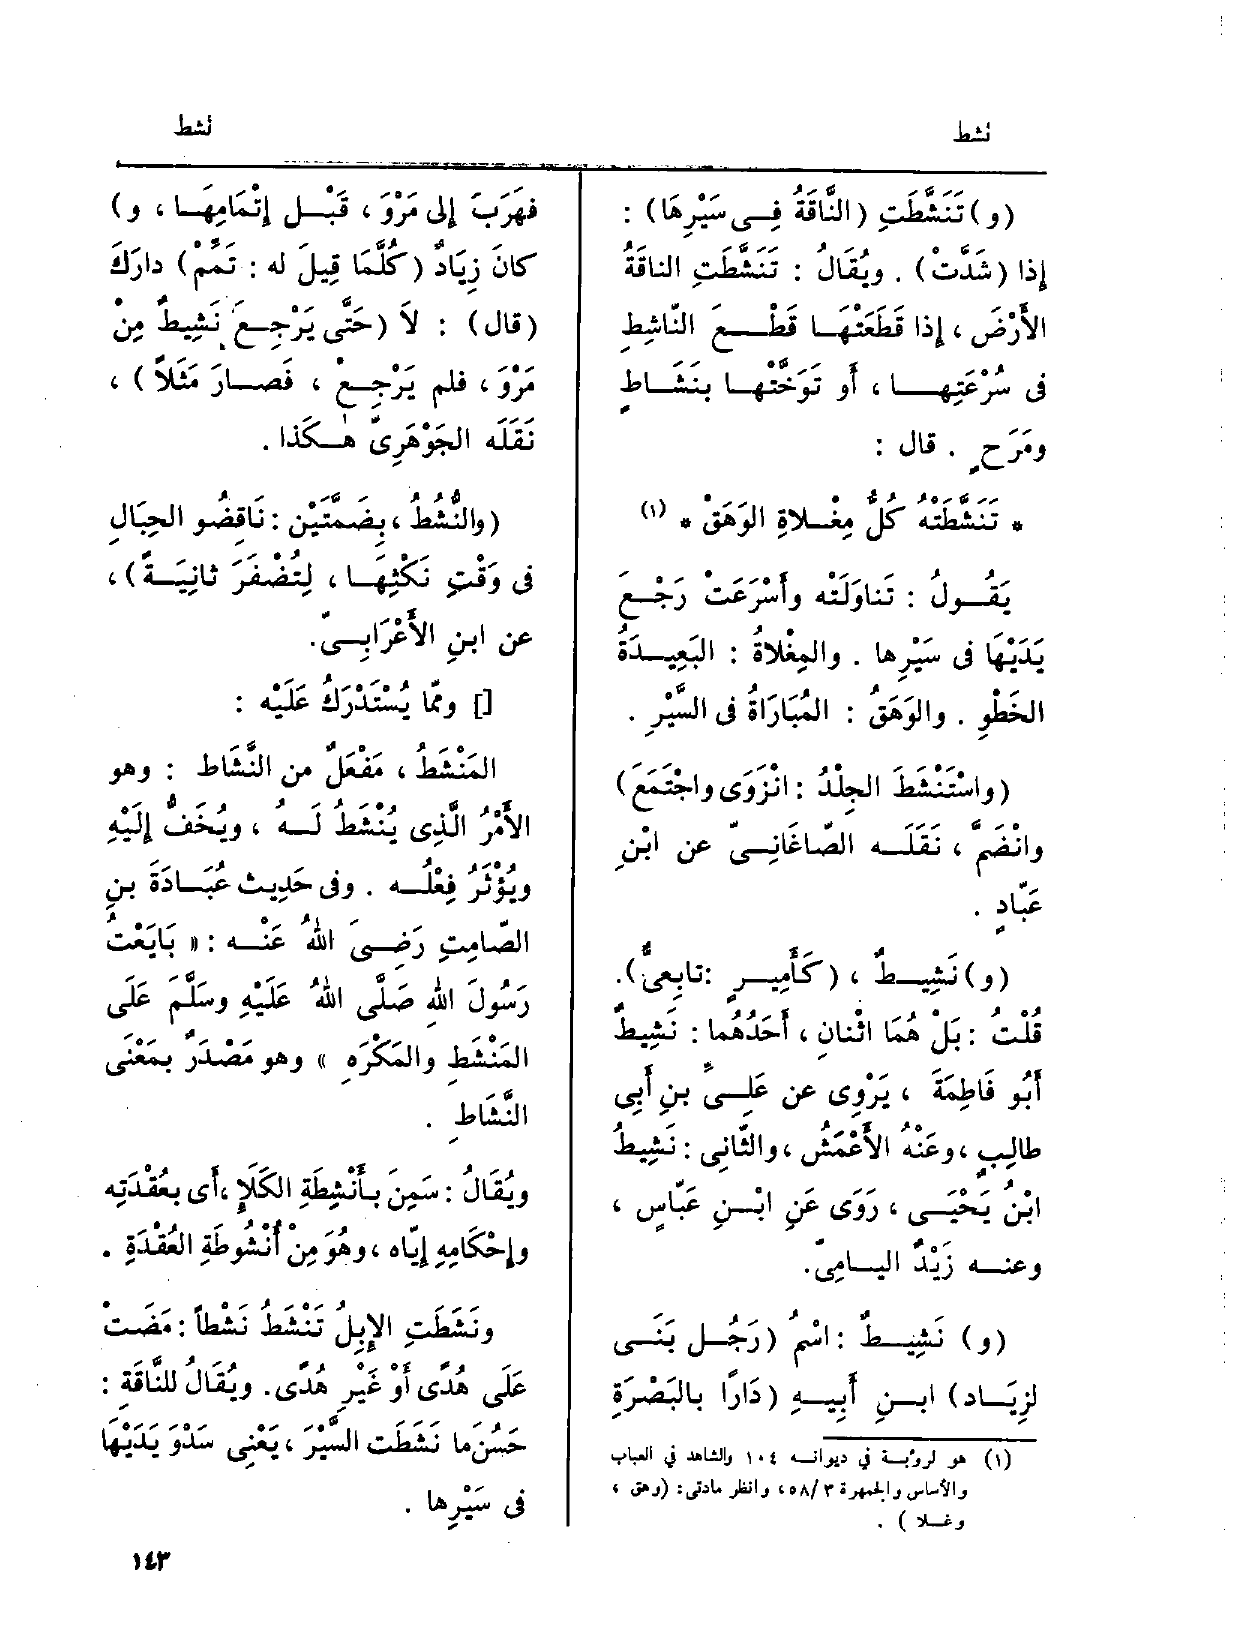 نشط
نشط
(و) تَنَشَّطَتِ (النَّاقَةُ فِى سَيْرِهَا) :
إذا (شَدَّتْ) . ويُقَالُ : تَنَشَّطَتِ الناقَةُ
الأَرْضَ ، إذا قَطَعَتْهَا قَطْعَ النّاشِطِ
فى سُرْعَتِهَا ، أو تَوَخَّتْها بنَشَاطٍ
ومَرَحٍ . قال :
* تَنَشَّطَتْهُ كلُّ مِغْلاةِ الوَهَقْ * (١)
يَقُولُ : تَناوَلَتْه وأَسْرَعَتْ رَجْعَ
يَدَيْهَا فى سَيْرِها . والمِغْلاةُ : البَعِيدَةُ
الخَطْوِ . والوَهَقُ : المُبَارَاةُ فى السَّيْرِ .
(واسْتَنْشَطَ الجِلْدُ : انْزَوَى واجْتَمَعَ)
وانْضَمَّ ، نَقَلَه الصّاغَانِىّ عن ابْنِ
عَبّادٍ .
(و) نَشِيطٌ ، (كأَمِيرٍ :تابِعِىٌّ).
قُلْتُ : بَلْ هُمَا اثْنانِ ، أَحَدُهُما : نَشِيطٌ
أَبُو فَاطِمَةَ ، يَرْوِى عن عَلِىِّ بنِ أَبِى
طالِبٍ ، وعَنْهُ الأَعْمَشُ ، والثّانِى : نَشِيطُ
ابْنُ يَحْيَى ، رَوَى عَنِ ابْنِ عَبّاسٍ ،
وعنه زَيْدٌ اليامِىّ.
(و) نَشِيطٌ : اسْمُ (رَجُلٍ بَنَى
لزِيَاد) ابنِ أَبِيهِ (دَارًا بالبَصْرَةِ
(١) هو لرؤبة في ديوانه ١٠٤ والشاهد في العباب
والأساس والجمهرة ٥٨/٣، وانظر مادتى: (وهق ،
وغلا ) .
فهَرَبَ إلى مَرْوَ ، قَبْلَ إتْمَامِهَا ، و)
كانَ زِيَادٌ (كُلَّمَا قِيلَ له : تَمِّمْ) دارَكَ
(قال) : لاَ (حَتَّى يَرْجِعَ نَشِيطٌ مِنْ
مَرْوَ ، فلم يَرْجِعْ ، فَصارَ مَثَلاً) ،
نَقَلَه الجَوْهَرِىّ هٰكَذا .
(والنُّشُطُ ، بِضَمَّتَيْن : نَاقِضُو الحِبَالِ
فى وَقْتِ نَكْثِهَا ، لِتُضْفَرَ ثانِيَةً) ،
عن ابنِ الأَعْرَابِىّ.
[] وممّا يُسْتَدْرَكُ عَلَيْه :
المَنْشَطُ ، مَفْعَلٌ من النَّشَاطِ : وهو
الأَمْرُ الَّذِى يُنْشَطُ لَهُ ، ويُخَفُّ إِلَيْهِ
ويُؤْثَرُ فِعْلُه . وفى حَدِيث عُبَادَةَ بنِ
الصّامِتِ رَضِىَ اللهُ عَنْه : « بَايَعْتُ
رَسُولَ اللهِ صَلَّى اللهُ عَلَيْهِ وسَلَّمَ عَلَى
المَنْشَطِ والمَكْرَهِ » وهو مَصْدَرٌ بمَعْنَى
النَّشَاطِ .
ويُقَالُ : سَمِنَ بأَنْشِطَةِ الكَلإِ ،أَى بعُقْدَتِه
وإِحْكَامِهِ إيّاه ، وهُوَ مِنْ أُنْشُوطَةِ العُقْدَةِ .
ونَشَطَتِ الإبِلُ تَنْشَطُ نَشْطاً : مَضَتْ
عَلَى هُدًى أَوْ غَيْرِ هُدًى. ويُقَالُ للنّاقَةِ :
حَسُنَ ما نَشَطَت السَّيْرَ ، يَعْنِى سَدْوَ يَدَيْهَا
فى سَيْرِها .
١٤٣